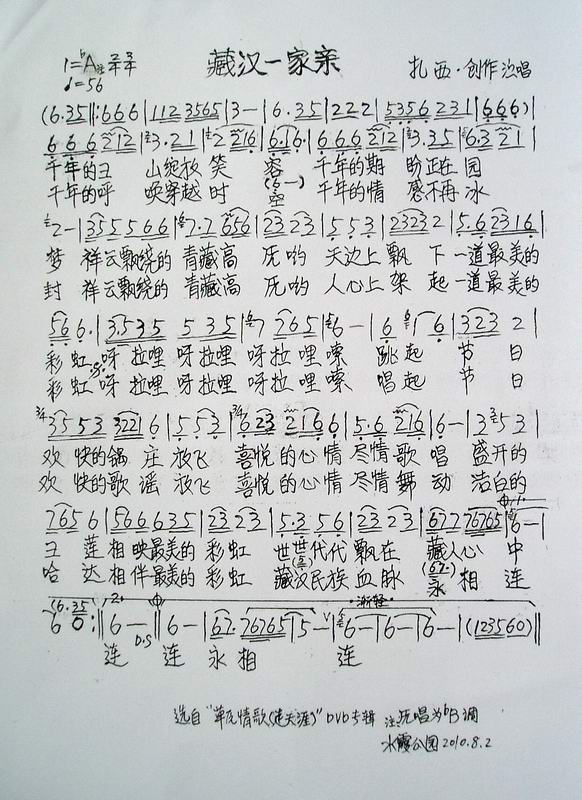 藏汉一家亲
1=♭A 2/4 3/4
♩=56
扎西·创作演唱
(6.35|:666|112 3565|3-|6.35|222|5356 231|666)|
666 212|3.21|2 216|616|666 212|3.35|6.3 21|
千年的王 山绽放 笑 容 千年的期 盼正在 园
千年的呼 唤穿越 时 空 千年的情 感不再 冰
2-|355566|7.7 656|23 23|553|2323 2|5.6 2316|
梦 祥云飘绕的 青藏高 厡哟 天边上 飘 下 一道最美的
封 祥云飘绕的 青藏高 厡哟 人心上 架 起 一道最美的
56 6.|3.535 535|7 765|6-|6 16|323 2|
彩虹 呀拉哩 呀拉哩 呀拉哩嗦 跳起 节 日
彩虹 呀拉哩 呀拉哩 呀拉哩嗦 唱起 节 日
3/4 3553 3221 6|553|3/4 623 2166|5.6 216|6-|3 353|
欢 快的锅 庄 放飞 喜悦的心情 尽情歌 唱 盛开的
欢 快的歌 谣 放飞 喜悦的心情 尽情舞 动 洁白的
765 6|566635|23 23|5.3 56|23 23|677 76765|6-|
王 莲 相映最美的 彩虹 世世代代 飘在 藏人心 中
哈 达 相伴最美的 彩虹 藏汉民族 血脉 永 相 连
(6.35
6 0:‖6-‖6-|67. 76765|5-|6-|6-|6-|(123560)‖
2. D.S 渐轻
连 连 永相 连
选自"草厡情歌(走天涯)"DVD专辑 注:厡唱为♭B调
水霞公园2010.8.2